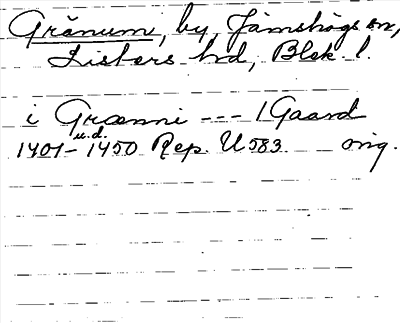 Gränum, by, Jämshögs sn,
Listers hd, Blek. l.
i Grænni --- 1 Gaard
u.d.
1401-1450 Rep. U 583 orig.